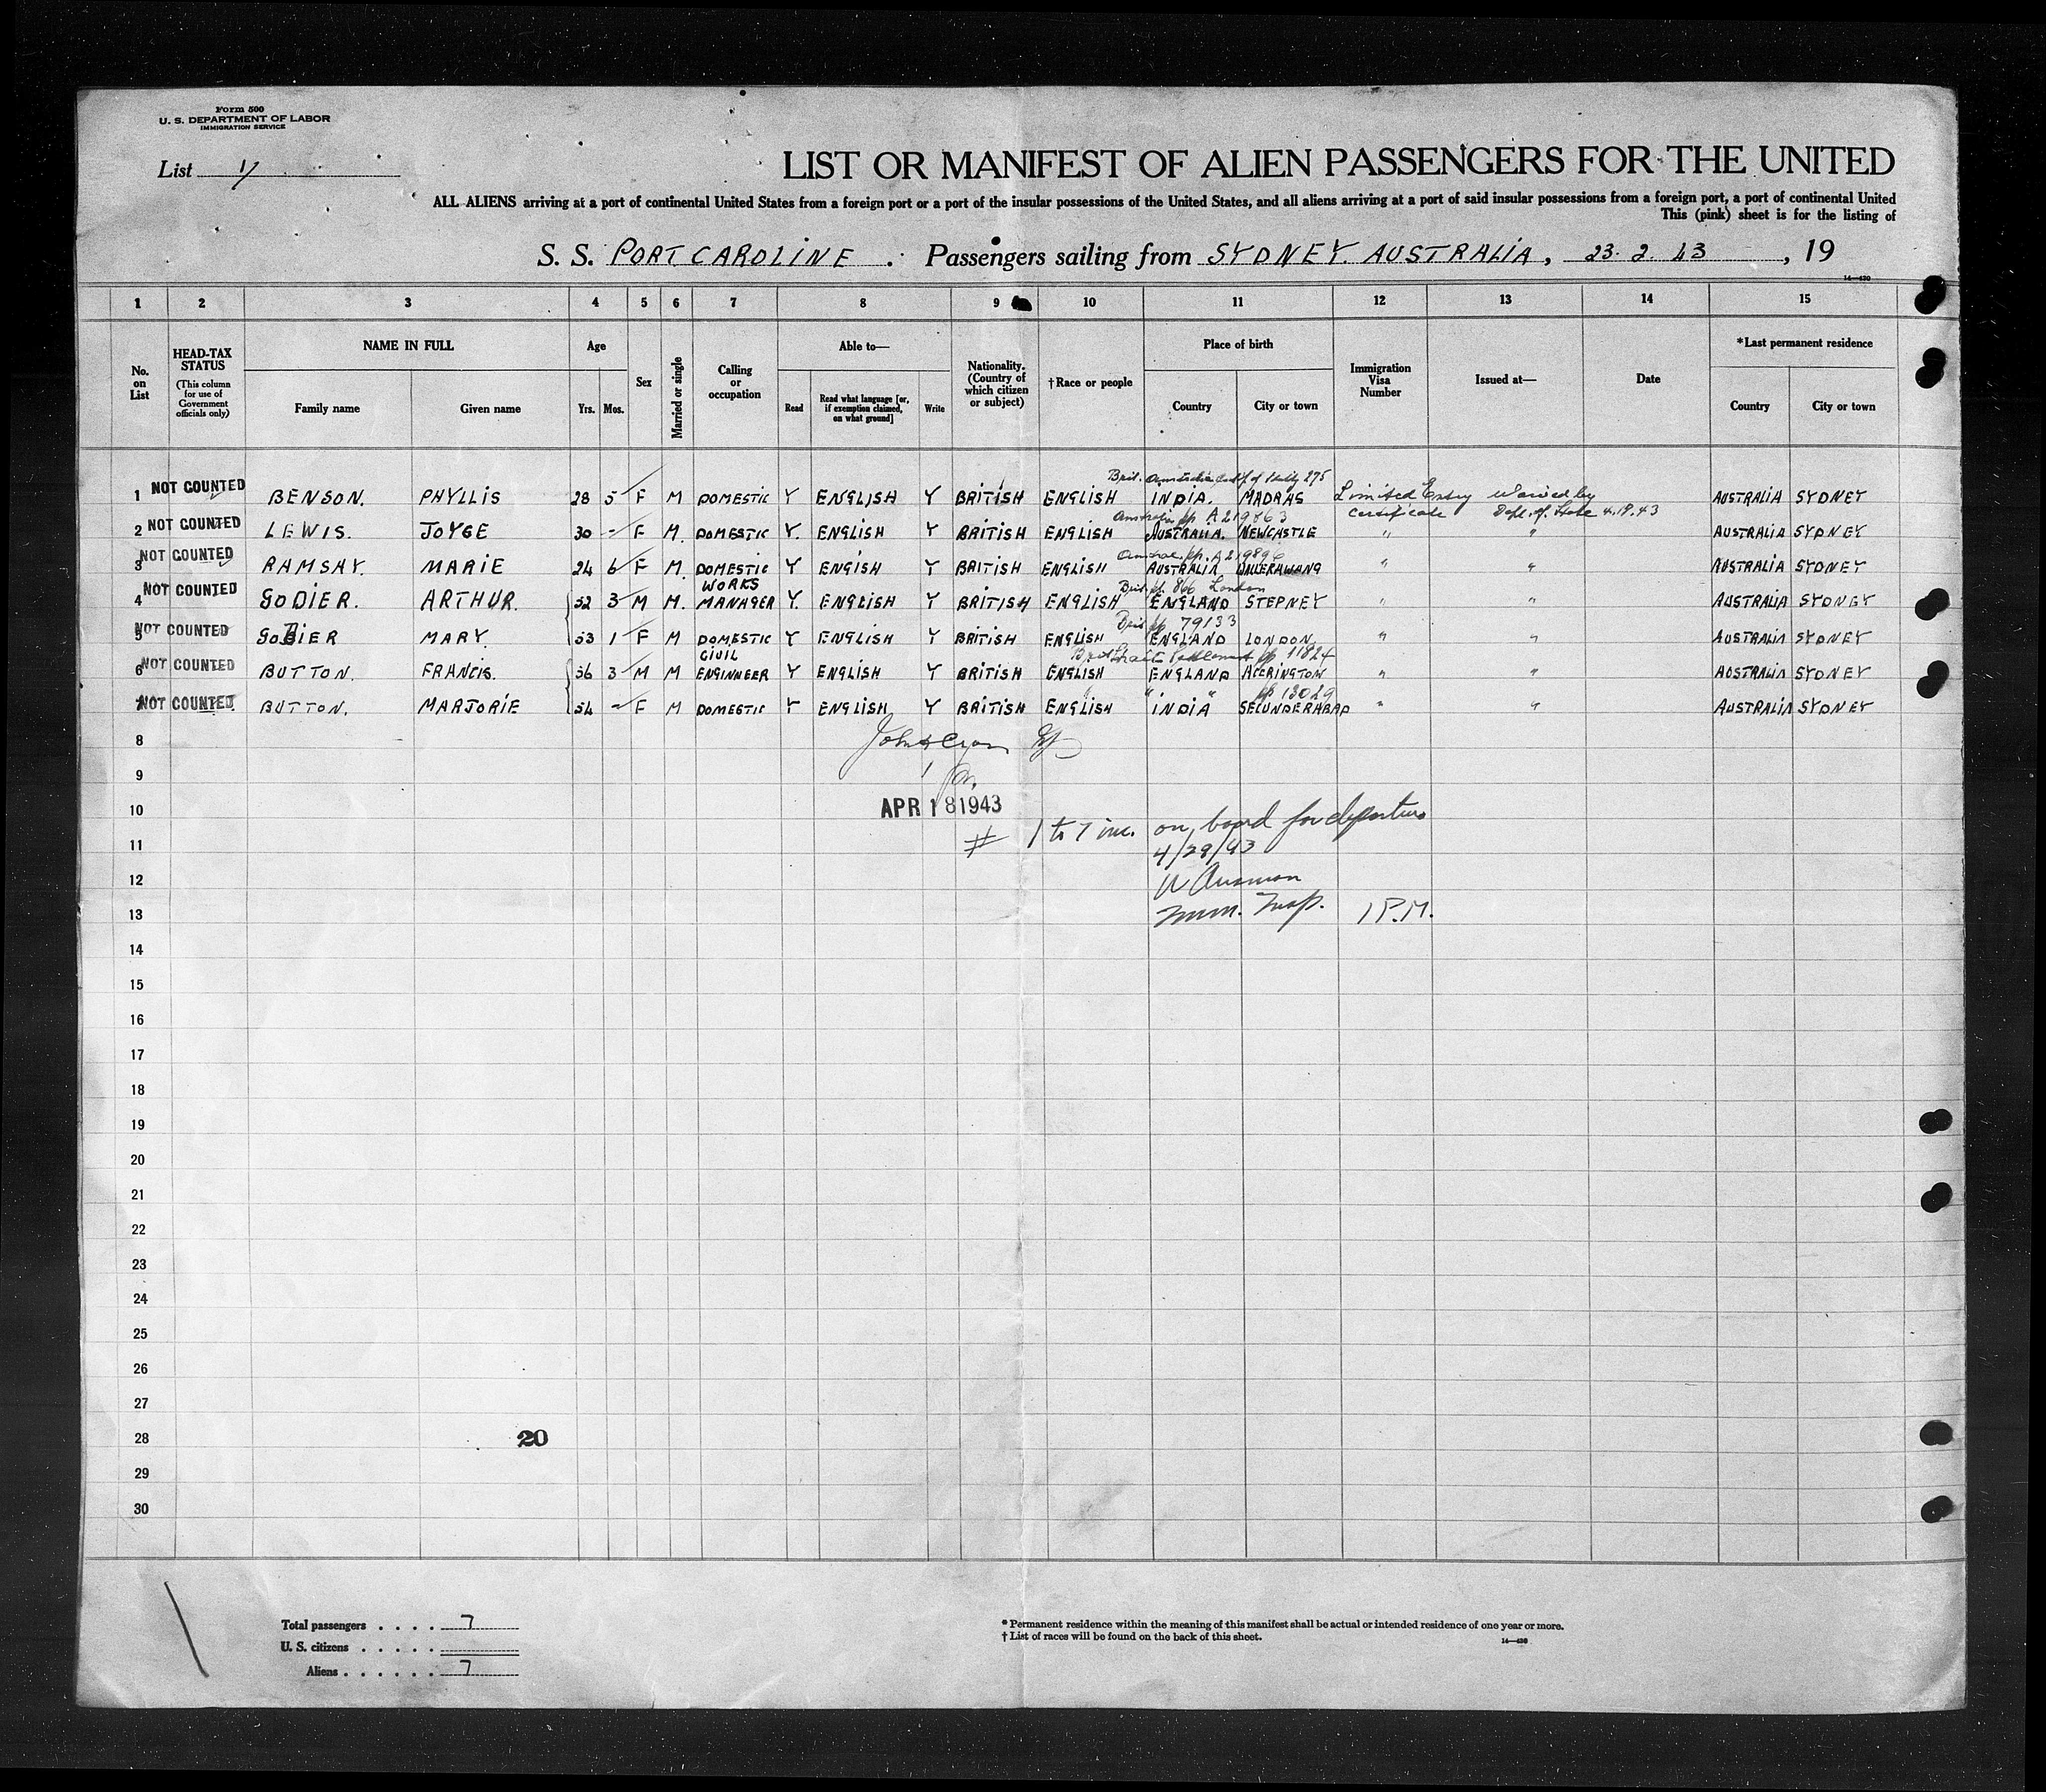 Form 500
U. S. DEPARTMENT OF LABOR
IMMIGRATION SERVICE
List 1/
LIST OR MANIFEST OF ALIEN PASSENGERS FOR THE UNITED
ALL ALIENS arriving at a port of continental United States from a foreign port or a port of the insular possessions of the United States, and all aliens arriving at a port of said insular possessions from a foreign port, a port of continental United
This (pink) sheet is for the listing of
S. S. PORT CAROLINE . Passengers sailing from SYDNEY. AUSTRALIA , 23. 2. 43 , 19
14—430
1 2 3 4 5 6 7 8 9 10 11 12 13 14 15
No. on List
HEAD-TAX STATUS (This column for use of Government officials only)
NAME IN FULL
Family name Given name
Age
Yrs. Mos.
Sex
Married or single
Calling or occupation
Able to—
Read Read what language [or, if exemption claimed, on what ground] Write
Nationality. (Country of which citizen or subject)
†Race or people
Place of birth
Country City or town
Immigration Visa Number
Issued at—
Date
*Last permanent residence
Country City or town
Brit. Australia 275
1 NOT COUNTED BENSON. PHYLLIS 28 5 F M DOMESTIC Y ENGLISH Y BRITISH ENGLISH INDIA. MADRAS Limited Entry Waived by AUSTRALIA SYDNEY
Australia pp A219863 certificate Dept. of State 4.19.43
2 NOT COUNTED LEWIS. JOYCE 30 - F M. DOMESTIC Y. ENGLISH Y BRITISH ENGLISH AUSTRALIA. NEWCASTLE " " AUSTRALIA SYDNEY
3 NOT COUNTED RAMSAY. MARIE 24 6 F M. DOMESTIC Y ENGISH Y BRITISH ENGLISH AUSTRALIA WALLERAWANG " " AUSTRALIA SYDNEY
WORKS Brit. pp. 866 London
4 NOT COUNTED GODIER. ARTHUR. 52 3 M M. MANAGER Y. ENGLISH Y BRITISH ENGLISH ENGLAND STEPNEY " " AUSTRALIA SYDNEY
Brit pp 79133
5 NOT COUNTED GODIER MARY. 53 1 F M DOMESTIC Y ENGLISH Y BRITISH ENGLISH ENGLAND LONDON " " AUSTRALIA SYDNEY
CIVIL pp 11824
6 NOT COUNTED BUTTON. FRANCIS. 56 3 M M ENGINNEER Y ENGLISH Y BRITISH ENGLISH ENGLAND ACCRINGTON " " AUSTRALIA SYDNEY
" " pp 13029
7 NOT COUNTED BUTTON. MARJORIE 54 - F M DOMESTIC Y ENGLISH Y BRITISH ENGLISH INDIA SECUNDERABAD " " AUSTRALIA SYDNEY
8
9
10 APR 18 1943
# 1 to 7 inc. on board for departure
11 4/29/43
12
13 Imm. Insp. 1 P.M.
14
15
16
17
18
19
20
21
22
23
24
25
26
27
28 20
29
30
Total passengers . . . . 7
U. S. citizens . . . . .
Aliens . . . . . . 7
* Permanent residence within the meaning of this manifest shall be actual or intended residence of one year or more.
† List of races will be found on the back of this sheet. 14—430